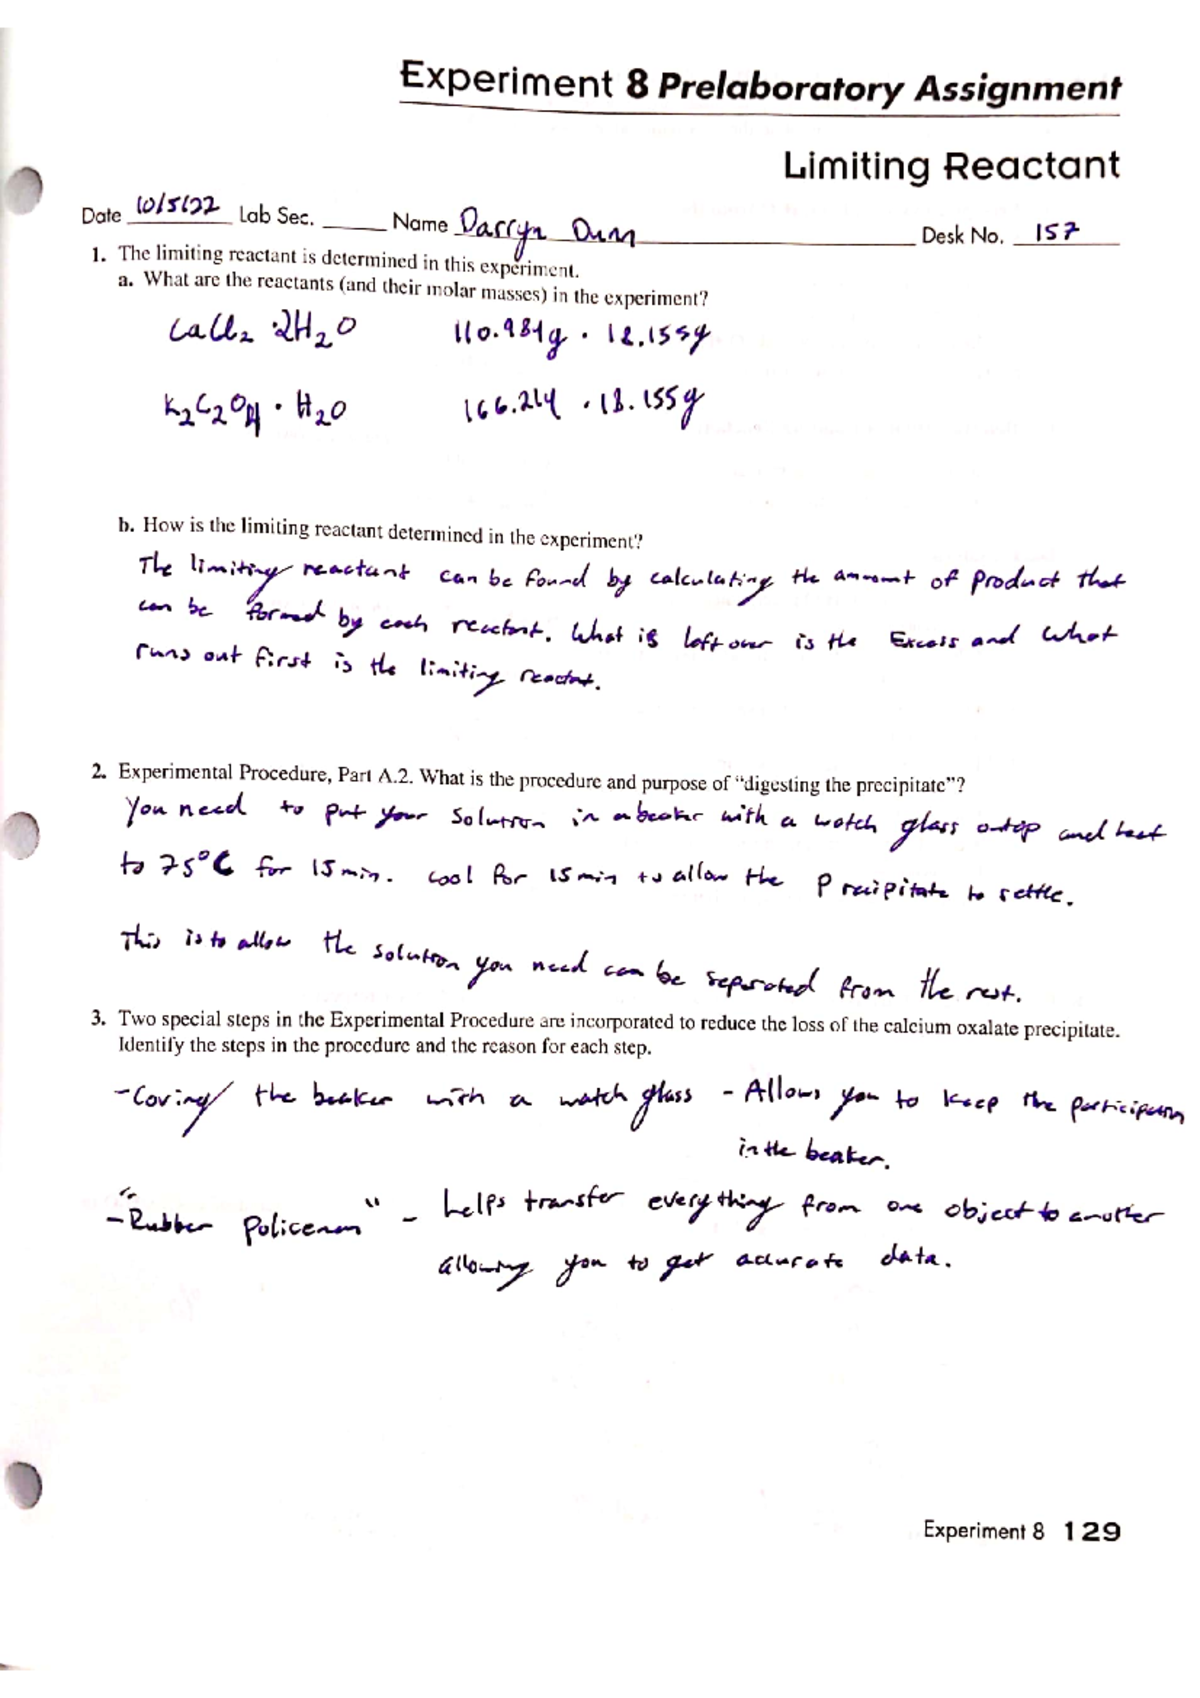 Experiment 8 Prelaboratory Assignment
Limiting Reactant
Date 10/5/22 Lab Sec. ______ Name Darryn Dunn Desk No. 157
1. The limiting reactant is determined in this experiment.
a. What are the reactants (and their molar masses) in the experiment?
CaCl₂ ·2H₂O 110.984g · 18.155g
K₂C₂O₄ · H₂O 166.214 · 18.155g
b. How is the limiting reactant determined in the experiment?
The limiting reactant can be found by calculating the amount of product that
can be formed by each reactant. What is left over is the Excess and what
runs out first is the limiting reactant.
2. Experimental Procedure, Part A.2. What is the procedure and purpose of “digesting the precipitate”?
You need to put your solution in a beaker with a watch glass ontop and heat
to 75°C for 15 min. cool for 15 min to allow the Precipitate to settle.
This is to allow the solution you need can be separated from the rest.
3. Two special steps in the Experimental Procedure are incorporated to reduce the loss of the calcium oxalate precipitate.
Identify the steps in the procedure and the reason for each step.
- Coving the beaker with a watch glass - Allows you to keep the
in the beaker.
- "Rubber Policeman" - helps transfer everything from one object to another
allowing you to get accurate data.
Experiment 8 129